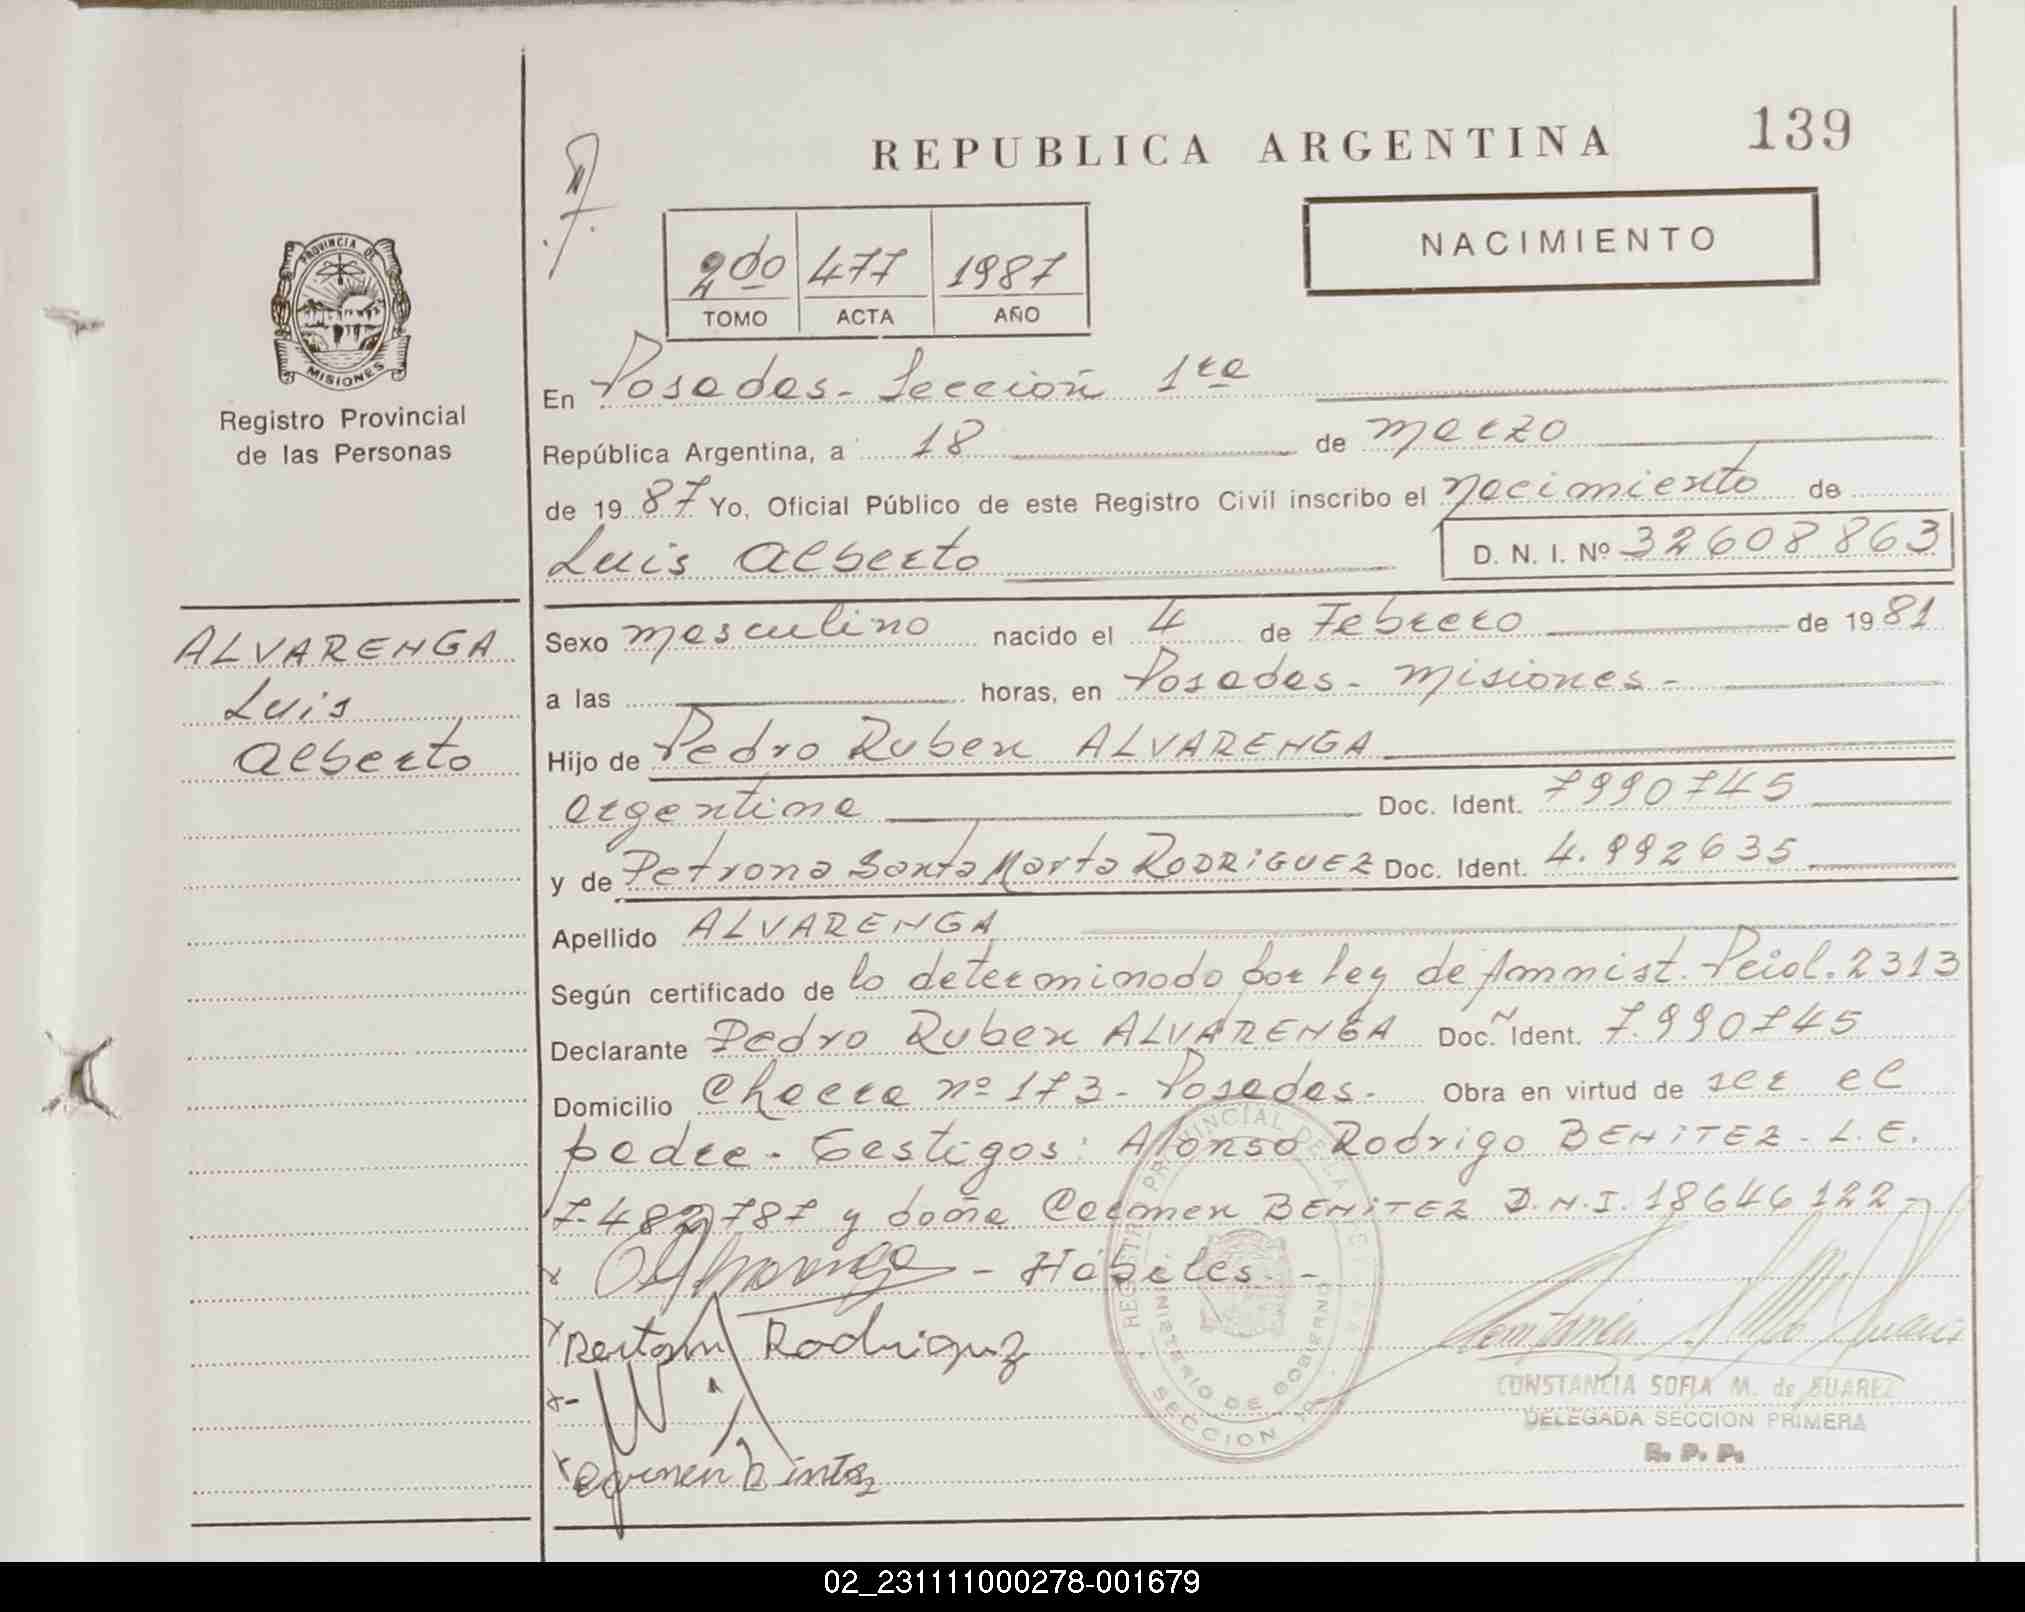 REPUBLICA ARGENTINA
139
2do 477 1987
TOMO ACTA AÑO
NACIMIENTO
PROVINCIA DE
MISIONES
Registro Provincial
de las Personas
ALVARENGA
Luis
Alberto
En Posadas - Sección 1ra
República Argentina, a 18 de marzo
de 1987 Yo, Oficial Público de este Registro Civil inscribo el nacimiento de
Luis Alberto D. N. I. Nº 32608863
Sexo masculino nacido el 4 de Febrero de 1981
a las horas, en Posadas - Misiones -
Hijo de Pedro Ruben ALVARENGA
argentina Doc. Ident. 7990745
y de Petrona Santa Marta RODRIGUEZ Doc. Ident. 4.992635
Apellido ALVARENGA
Según certificado de lo determinado por ley de Amnist. Pciol. 2313
Declarante Pedro Ruben ALVARENGA Doc. Ident. 7.990745
Domicilio Chacra nº 173 - Posadas - Obra en virtud de ser el
padre - Testigos: Afonso Rodrigo BENITEZ - L.E.
7.482787 y doña Carmen BENITEZ D.N.I. 18646122 -
x - Hábiles. -
x Rodriguez
x-
x Carmen
REGISTRO PROVINCIAL DE LA
MINISTERIO DE GOBIERNO
SECCION
CONSTANCIA SOFIA M. de SUAREZ
DELEGADA SECCION PRIMERA
R. P. P.
02_231111000278-001679